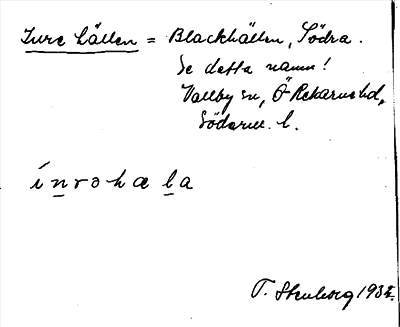 Inre hällen = Blackhällen, Södra.
Se detta namn!
Vallby sn, Ö Rekarne hd,
Söderm. l.
ínrəhæla
T. Stenberg 1932.